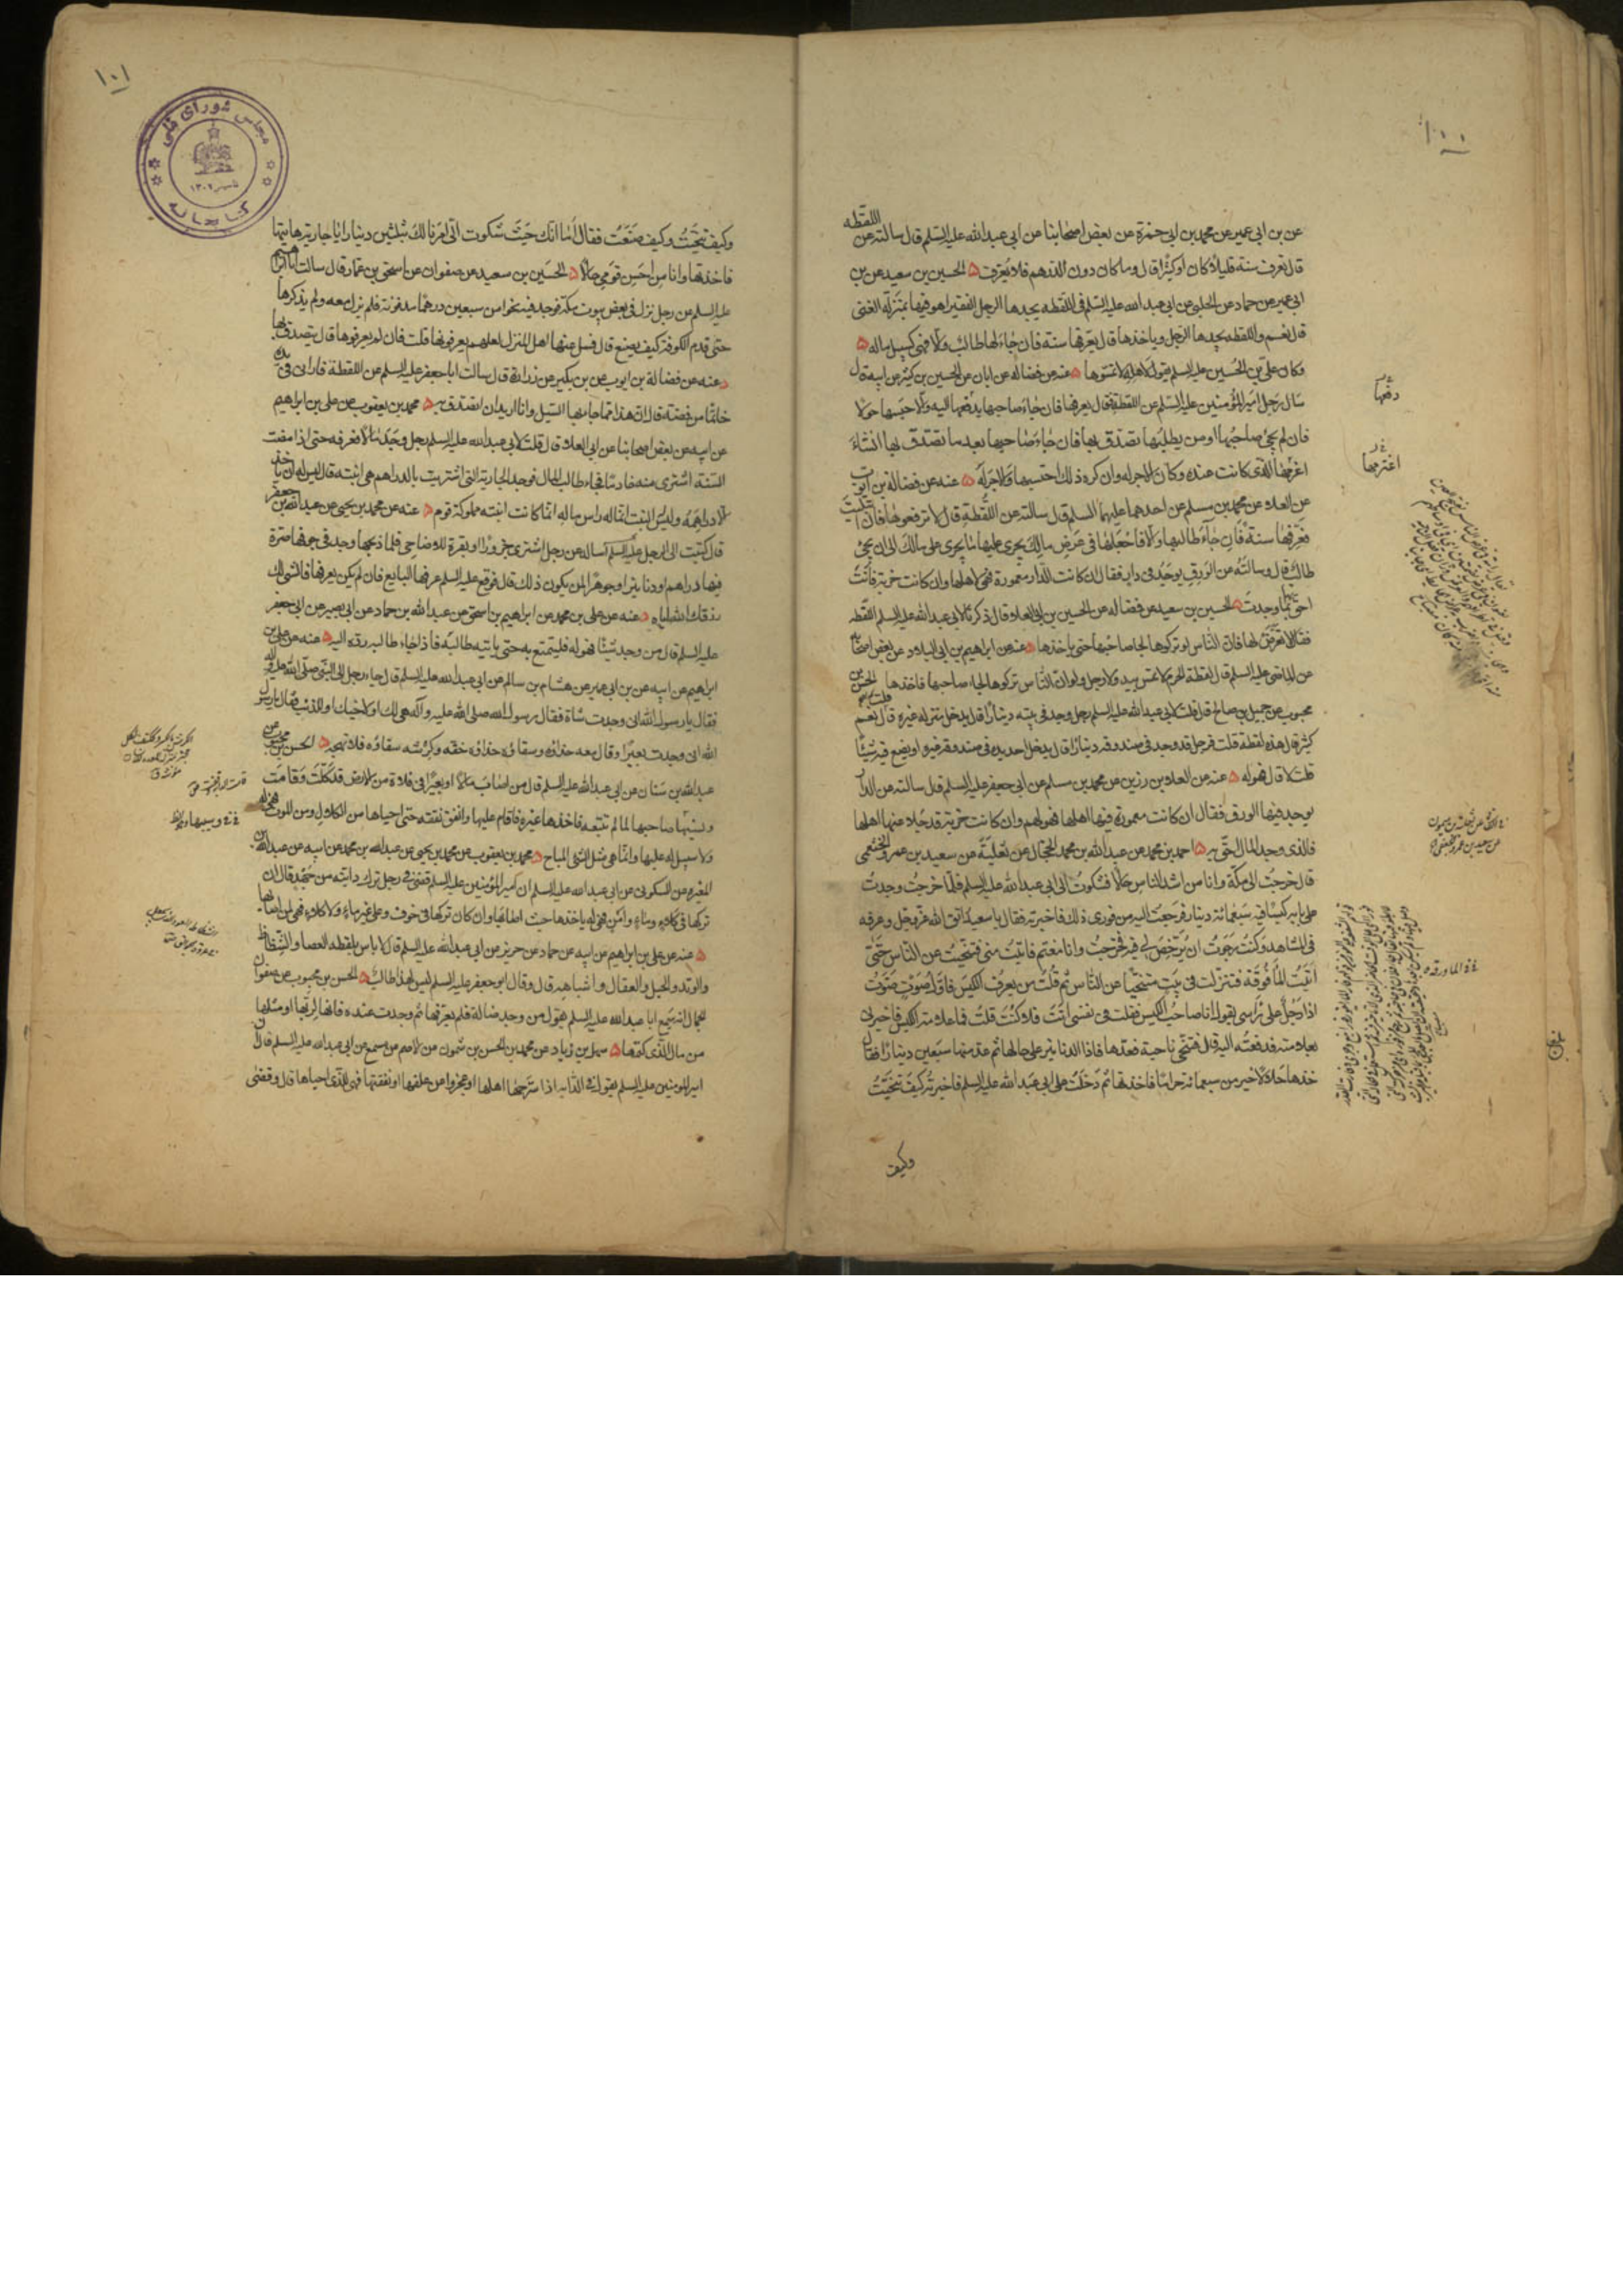 ١٠٠
عن بن ابى عمير عن محمد بن ابى حمزة عن بعض اصحابنا عن ابى عبد الله عليه السلم قال سالته عن اللقطه
قال تعرف سنة قليلا كان او كثيرا قال وما كان دون الدرهم فلا يعرف ۵ الحسين بن سعيد عن بن
ابى عمير عن حماد عن الحلبى عن ابى عبد الله عليه السلم فى اللقطه يجدها الرجل الفقير اهو فيها بمنزلة الغنى
قال نعم واللقطه يجدها الرجل وياخذها قال يعرفها سنة فان جاء لها طالب والا فهى كسبيل ماله ۵
وكان على بن الحسين عليه السلم يقول لاهله لا تمسوها ۵ عنه عن فضاله عن ابان عن الحسين بن كثير عن ابيه قال
سال رجل امير المؤمنين عليه السلم عن اللقطة فقال يعرفها فان جاء صاحبها يدفعها اليه والا حبسها حولا
فان لم يجئ صاحبها او من يطلبها تصدق بها فان جاء صاحبها بعد ما تصدق بها ان شاء
اغرمها الذى كانت عنده وكان الاجر له وان كره ذلك احتسبها والاجر له ۵ عنه عن فضالة بن ايوب
عن العلاء عن محمد بن مسلم عن احدهما عليهما السلم قال سالته عن اللقطة قال لا ترفعوها فان ابتليت
فعرفها سنة فان جاء طالبها والا فاجعلها فى عرض مالك يجرى عليها ما يجرى على مالك الى ان يجئ
طالب قال وسالته عن الورق يوجد فى دار فقال ان كانت الدار معمورة فهى لاهلها وان كانت خربة فانت
احق بما وجدت ۵ الحسين بن سعيد عن فضاله عن الحسين بن ابى العلاء قال ذكرنا لابى عبد الله عليه السلم اللقطه
فقال لا تعرض لها فان الناس لو تركوها لجاء صاحبها حتى ياخذها ۵ عنه عن ابراهيم بن ابى البلاد عن بعض اصحابه
عن الماضى عليه السلم قال لقطة الحرم لا تمس بيد ولا رجل ولو ان الناس تركوها لجاء صاحبها فاخذها الحسن بن
محبوب عن جميل بن صالح قال قلت لابى عبد الله عليه السلم رجل وجد فى بيته دينارا قال يدخل منزله غيره قلت نعم
كثير قال هذه لقطة قلت فرجل قد وجد فى صندوقه دينارا قال يدخل احد يده فى صندوقه غيره او يضع فيه شيئا
قلت لا قال فهو له ۵ عنه عن العلاء بن رزين عن محمد بن مسلم عن ابى جعفر عليه السلم قال سالته عن الدار
يوجد فيها الورق فقال ان كانت معمورة فيها اهلها فهو لهم وان كانت خربة قد جلا عنها اهلها
فالذى وجد المال احق به ۵ احمد بن محمد عن عبد الله بن محمد الحجال عن ثعلبة عن سعيد بن عمرو الخثعمى
قال خرجت الى مكة وانا من اشد الناس حالا فشكوت الى ابى عبد الله عليه السلم فلما خرجت وجدت
على بابه كيسا فيه سبعمائة دينار فرجعت اليه من فورى ذلك فاخبرته فقال يا سعيد اتق الله عز وجل وعرفه
فى المشاهد وكنت رجوت ان يرخص لى فيه فخرجت وانا مغتم فاتيت منى فتنحيت عن الناس حتى
اتيت الماقوفة فنزلت فى بيت متنحيا عن الناس ثم قلت من يعرف الكيس فاول صوت صوت
اذا رجل على راسى يقول انا صاحب الكيس فقلت فى نفسى انت فلا كنت قلت فما علامة الكيس فاخبرنى
بعلامته فدفعته اليه قال فتنحى ناحية فعدها فاذا الدنانير على حالها ثم عد منها سبعين دينارا فقال
خذها حلالا خير من سبعمائة حراما فاخذتها ثم دخلت على ابى عبد الله عليه السلم فاخبرته كيف تنحيت
وكيف
دفعها
اغترمها
١٠١
مجلس شوراى ملى
كتابخانه
وكيف تنحيت وكيف صنعت فقال اما انك حيث شكوت الى امرنا لك بثلثين دينارا يا جارية هاتيها
فاخذتها وانا من احسن قومى حالا ۵ الحسين بن سعيد عن صفوان عن اسحق بن عمار قال سالت ابا ابراهيم
عليه السلم عن رجل نزل فى بعض بيوت مكة فوجد فيه نحوا من سبعين درهما مدفونة فلم تزل معه ولم يذكرها
حتى قدم الكوفة كيف يصنع قال فسل عنها اهل المنزل لعلهم يعرفونها قلت فان لم يعرفوها قال يتصدق بها
۵ عنه عن فضالة بن ايوب عن بن بكير عن زرارة قال سالت ابا جعفر عليه السلم عن اللقطة فارانى فى يده
خاتما من فضة قال ان هذا مما جاء به السيل وانا اريد ان اتصدق به ۵ محمد بن يعقوب عن على بن ابراهيم
عن ابيه عن بعض اصحابنا عن ابى العلاء قال قلت لابى عبد الله عليه السلم رجل وجد مالا فعرفه حتى اذا مضت
السنة اشترى منه خادما فجاء طالب المال فوجد الجارية التى اشتريت بالدراهم هى ابنته قال ليس له ان ياخذ
الا دراهمه وليس البنت انما له راس ماله انما كانت ابنته مملوكة قوم ۵ عنه عن محمد بن يحيى عن عبد الله بن جعفر
قال كتبت الى الرجل عليه السلم اساله عن رجل اشترى جزورا او بقرة للاضاحى فلما ذبحها وجد فى جوفها صرة
فيها دراهم او دنانير او جوهر لمن يكون ذلك قال فوقع عليه السلم عرفها البايع فان لم يكن يعرفها فالشئ لك
رزقك الله اياه ۵ عنه عن على بن محمد عن ابراهيم بن اسحق عن عبد الله بن حماد عن ابى بصير عن ابى جعفر
عليه السلم قال من وجد شيئا فهو له فليتمتع به حتى ياتيه طالبه فاذا جاء طالبه رده اليه ۵ عنه عن على بن
ابراهيم عن ابيه عن بن ابى عمير عن هشام بن سالم عن ابى عبد الله عليه السلم قال جاء رجل الى النبى صلى الله عليه وآله
فقال يا رسول الله انى وجدت شاة فقال رسول الله صلى الله عليه وآله هى لك او لاخيك او للذئب فقال يا رسول
الله انى وجدت بعيرا وقال معه حذاؤه وسقاؤه حذاؤه خفه وكرشه سقاؤه فلا تهجه ۵ الحسن بن محبوب عن
عبد الله بن سنان عن ابى عبد الله عليه السلم قال من اصاب مالا او بعيرا فى فلاة من الارض قد كلت وقامت
وسيبها صاحبها لما لم تتبعه فاخذها غيره فاقام عليها وانفق نفقته حتى احياها من الكلال ومن الموت فهى له
ولا سبيل له عليها وانما هى مثل الشئ المباح ۵ محمد بن يعقوب عن محمد بن يحيى عن عبد الله بن محمد عن ابيه عن عبد الله بن
المغيره عن السكونى عن ابى عبد الله عليه السلم ان امير المؤمنين عليه السلم قضى فى رجل ترك دابته من جهد قال ان
تركها فى كلاء وماء وامن فهى له ياخذها حيث اصابها وان كان تركها فى خوف وعلى غير ماء ولا كلاء فهى لمن اصابها
۵ عنه عن على بن ابراهيم عن ابيه عن حماد عن حريز عن ابى عبد الله عليه السلم قال لا باس بلقطه العصا والشظاظ
والوتد والحبل والعقال واشباهه قال وقال ابو جعفر عليه السلم ليس لهذا طالب ۵ الحسن بن محبوب عن صفوان
الجمال انه سمع ابا عبد الله عليه السلم يقول من وجد ضالة فلم يعرفها ثم وجدت عنده فانها لربها او مثلها
من مال الذى كتمها ۵ سهل بن زياد عن محمد بن الحسن بن شمون عن الاصم عن مسمع عن ابى عبد الله عليه السلم قال ان
امير المومنين عليه السلم يقول فى الدابه اذا سرحها اهلها او عجزوا عن علفها او نفقتها فهى للذى احياها قال وقضى